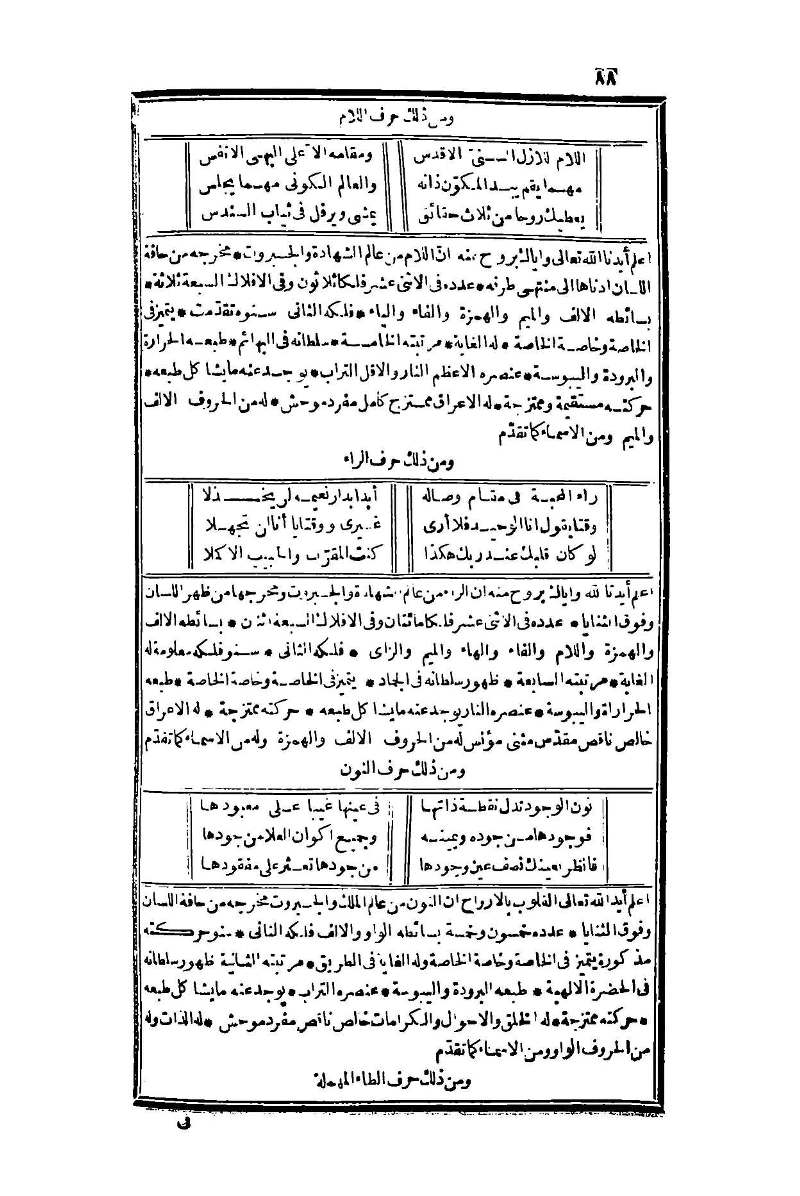 ٨٨
ومن ذلك حرف اللام
اللام للازل السنى الاقدس ومقامه الاعلى البهى الانفس
مهما يقم يبدى المكون ذاته والعالم الكونى مهما يجلس
يعطيك روحا من ثلاث حقائق يمشى ويرفل فى ثياب السندس
اعلم أيدنا الله تعالى وايالـٔ بروح منه انّ اللام من عالم الشهادة والجبروت * مخرجه من حافة
اللسان ادناها الى منتهى طرفه * عدده فى الاثنى عشر فلكا ثلاثون وفى الافلاك السبعة ثلاثة *
بسائطه الالف والميم والهمزة والفاء والياء * فلكه الثانى سنوه تقدّمت * يتميز فى
الخاصة وخاصة الخاصة * له الغاية * مرتبته الخامسة * سلطانه فى البهائم * طبعه الحرارة
والبرودة واليبوسة * عنصره الاعظم النار والاقل التراب * يوجد عنه مايشا كل طبعه *
حركته مستقيمة وممتزجة * له الاعراق ممتزج كامل مفرد موحش * له من الحروف الالف
والميم ومن الاسماء كما تقدّم
ومن ذلك حرف الراء
راء المحبة فى مقام وصاله أبدا بدار نعيمه لن يخذلا
وقتا يقول انا الوحيد فلا أرى غيرى ووقتا يا أنا لن تجهلا
لو كان قلبك عند ربك هكذا كنت المقرّب والحبيب الاكملا
اعلم أيدنا لله وايالـٔ بروح منه ان الراء من عالم الشهادة والجبروت ومخرجها من ظهر اللسان
وفوق الثنايا * عدده فى الاثنى عشر فلكا مائتان وفى الافلاك السبعة اثنان * بسائطه الالف
والهمزة واللام والفاء والهاء والميم والزاى * فلكه الثانى * سنو فلكه معلومة له
الغاية * مرتبته السابعة * ظهور سلطانه فى الجماد * يتميز فى الخاصة وخاصة الخاصة * طبعه
الحرارة واليبوسة * عنصره النار يوجد عنه مايشا كل طبعه * حركته ممتزجة * له الاعراق
خالص ناقص مقدّس مثنى مؤنس له من الحروف الالف والهمزة وله من الاسماء كما تقدّم
ومن ذلك حرف النون
نون الوجود تدل نقطة ذاتها فى عينها غيبا على معبودها
فوجودها من جوده ويمينه وجميع اكوان العلا من جودها
فانظر بعينك نصف عين وجودها من جودها تعثر على مفقودها
اعلم أيد الله تعالى القلوب بالارواح ان النون من عالم الملك والجبروت مخرجه من حافة اللسان
وفوق الثنايا * عدده خمسون وخمسة بسائطه الواو والالف فلكه الثانى * سنو حركته
مذكورة يتميز فى الخاصة وخاصة الخاصة وله الغايا فى الطريق * مرتبته الثانية ظهور سلطانه
فى الحضرة الالهية * طبعه البرودة واليبوسة * عنصره التراب * يوجد عنه مايشا كل طبعه
* حركته ممتزجة * له الخلق والاحوال والكرامات خالص ناقص مفرد موحش * له الذات وله
من الحروف الواو ومن الاسماء كما تقدّم
ومن ذلك حرف الطاء المهملة
فى